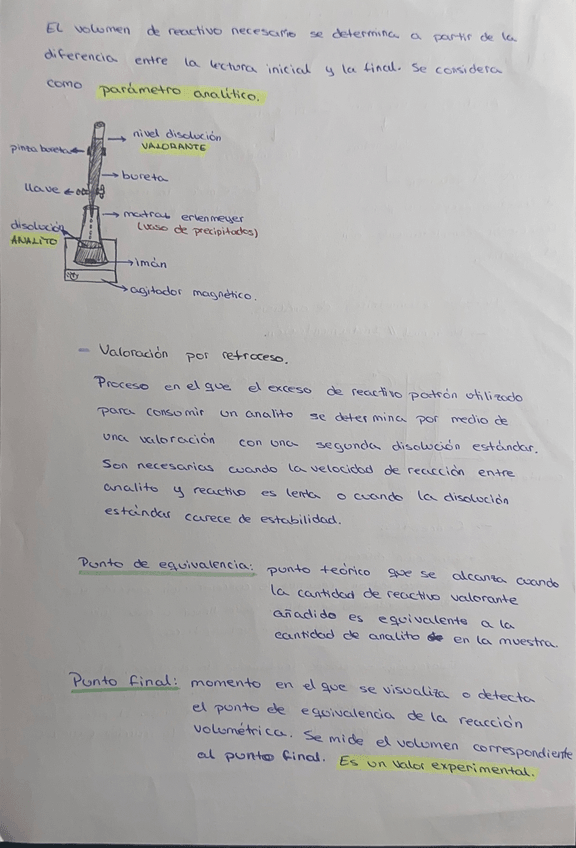 El volumen de reactivo necesario se determina a partir de la
diferencia entre la lectura inicial y la final. Se considera
como parámetro analítico.
nivel disolución
VALORANTE
pinza bureta
bureta
llave
matraz erlenmeyer
(vaso de precipitados)
disolución
ANALITO
imán
agitador magnético.
- Valoración por retroceso.
Proceso en el que el exceso de reactivo patrón utilizado
para consumir un analito se determina por medio de
una valoración con una segunda disolución estándar.
Son necesarias cuando la velocidad de reacción entre
analito y reactivo es lenta o cuando la disolución
estándar carece de estabilidad.
Punto de equivalencia: punto teórico que se alcanza cuando
la cantidad de reactivo valorante
añadido es equivalente a la
cantidad de analito en la muestra.
Punto final: momento en el que se visualiza o detecta
el punto de equivalencia de la reacción
volumétrica. Se mide el volumen correspondiente
al punto final. Es un valor experimental.